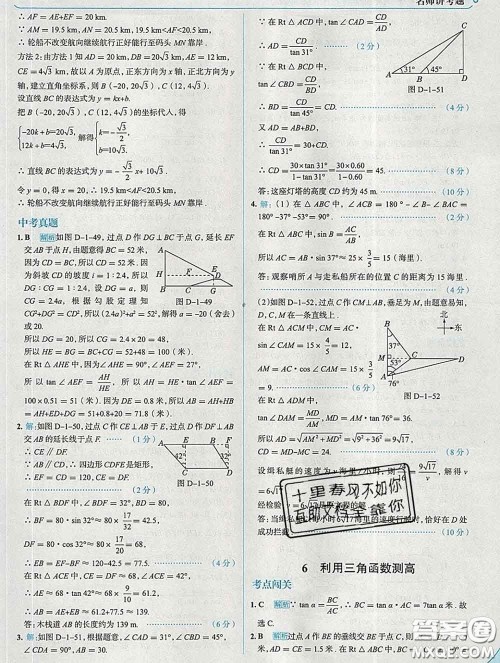 ∴ AF=AE+EF=20 km.
∵ AM=19.5 km, AN=20.5 km,
∴ 19.5 km<AF<20.5 km.
∴ 轮船不改变航向继续航行正好能行至码头 MN 靠岸.
方法 2:由方法 1 知 AD=20 km, DB=20√3 km, AE=12 km,
CE=4√3 km. 故以 A 为原点, 正东方向为 x 轴, 正北方向为 y
轴, 建立直角坐标系, 则 B (-20, 20√3), C (12, 4√3).
设直线 BC 的表达式为 y=kx+b.
把 B (-20, 20√3), C (12, 4√3) 的坐标代入得,
{-20k+b=20√3, 12k+b=4√3, 解得 {k=-√3/2, b=10√3.
∴ 直线 BC 的表达式为 y=-√3/2 x+10√3.
令 y=0, 得 x=20. ∵ AM=19.5 km<20 km<AN=20.5 km,
∴ 轮船不改变航向继续航行正好能行至码头 MN 靠岸.
中考真题
1. B 解析 如图 D-1-49, 过点 D 作 DG⊥BC 于点 G, 延长 EF
交 AB 于点 H, 由题意得 BC=52 米,
因为 CD=BC, 所以 CD=52 米. 因
为斜坡 CD 的坡度为 i=1:2.4, 所以
DG:CG=1:2.4. 设 DG=a, 则
CG=2.4a, 根据勾股定理知
CG²+DG²=CD², 所以 (2.4a)²+a²=52², 解得 a=-20 (舍去)
或 20.
图 D-1-49
所以 DG=20, 所以 CG=2.4×20=48,
所以 HE=BG=BC+CG=52+48=100 (米).
在 Rt△AHE 中, 因为∠AHE=90°, ∠AEF=27°,
所以 tan∠AEF=AH/HE, 所以 AH=HE·tan∠AEF≈
100×0.51=51 (米). 因为 DE=0.8 米, 所以 AB=AH+HB
=AH+DE+DG≈51+0.8+20=71.8 (米).
2. 解: 如图 D-1-50, 过点 C 作 CE⊥AB 于点 E, 过点 D 作 DF⊥AB
交 AB 的延长线于点 F. (1 分)
∴ CE∥DF.
∵ CD∥AB, ∴ 四边形 CDFE 是矩形.
∴ EF=CD=120, DF=CE. (2 分)
图 D-1-50
在 Rt△BDF 中, ∵ ∠BDF=32°, BD=80,
∴ DF=80·cos 32°≈80×17/20=68,
∴ BF=80·sin 32°≈80×
∴ BE=EF-BF= (4 分)
在 Rt△ACE 中, ∵ ∠ACE=42°, CE=DF=68,
∴ AE=68·tan 42°≈68×9/10=
∴ AB=AE+BE≈ +77.5≈139 (米).
答: 木栈道 AB 的长度约为 139 米. (6 分)
3. 解: 如图 D-1-51, ∵ ∠CAD=31°, ∠CBD=45°, ∠CDA
=90°, AB=30,
∴ 在 Rt△ACD 中, tan∠CAD=CD/AD,
∴ AD=CD/tan 31°. (2 分)
在 Rt△BCD 中,
tan∠CBD=CD/BD=1,
图 D-1-51
∴ BD=CD. (4 分)
∵ AD=AB+BD,
∴ CD/tan 31°=30+CD. (6 分)
∴ CD=30×tan 31°/(1-tan 31°)≈30×0.60/(1-0.60)=45. (8 分)
答: 这座灯塔的高度 CD 约为 45 m. (10 分)
4. 解: (1) 在△ABC 中, ∠ACB=180°-∠B-∠BAC=180°
-37°-53°=90°. (2 分)
在 Rt△ABC 中, sin B=AC/AB,
所以 AC=AB·sin 37°≈25×3/5=15 (海里).
答: 观察哨所 A 与走私船所在的位置 C 的距离约为 15 海里.
(4 分)
(2) 如图 D-1-52, 过点 C 作 CM⊥AB, 垂足为 M, 由题意易知,
D, C, M 在一条直线上.
在 Rt△ACM 中, CM=AC·
sin∠CAM=15×4/5=12,
AM=AC·cos∠CAM=15×3/5
=9. (6 分)
图 D-1-52
在 Rt△ADM 中, tan∠DAM=MD/AM,
所以 MD=AM·tan 76°≈36.
所以 AD=√(AM²+MD²)=√(9²+36²)=9√17,
CD=MD-MC=24. (8 分)
设缉私艇的速度为 v 海里/小时,
经检验,
答: 当缉私艇
成功拦截. (10 分)
6 利用三角函数测高
考点闯关
1. C 解析 ∵ tan α=BC/AC, ∴ BC=AC·tan α=7tan α 米. 故
2. B 解析 过点 A 作 BE 的垂线交 BE 于点 F, ∵ 斜
名师讲考题
十里春风不如你
互助文档全靠你
答案圈
MXQE.COM